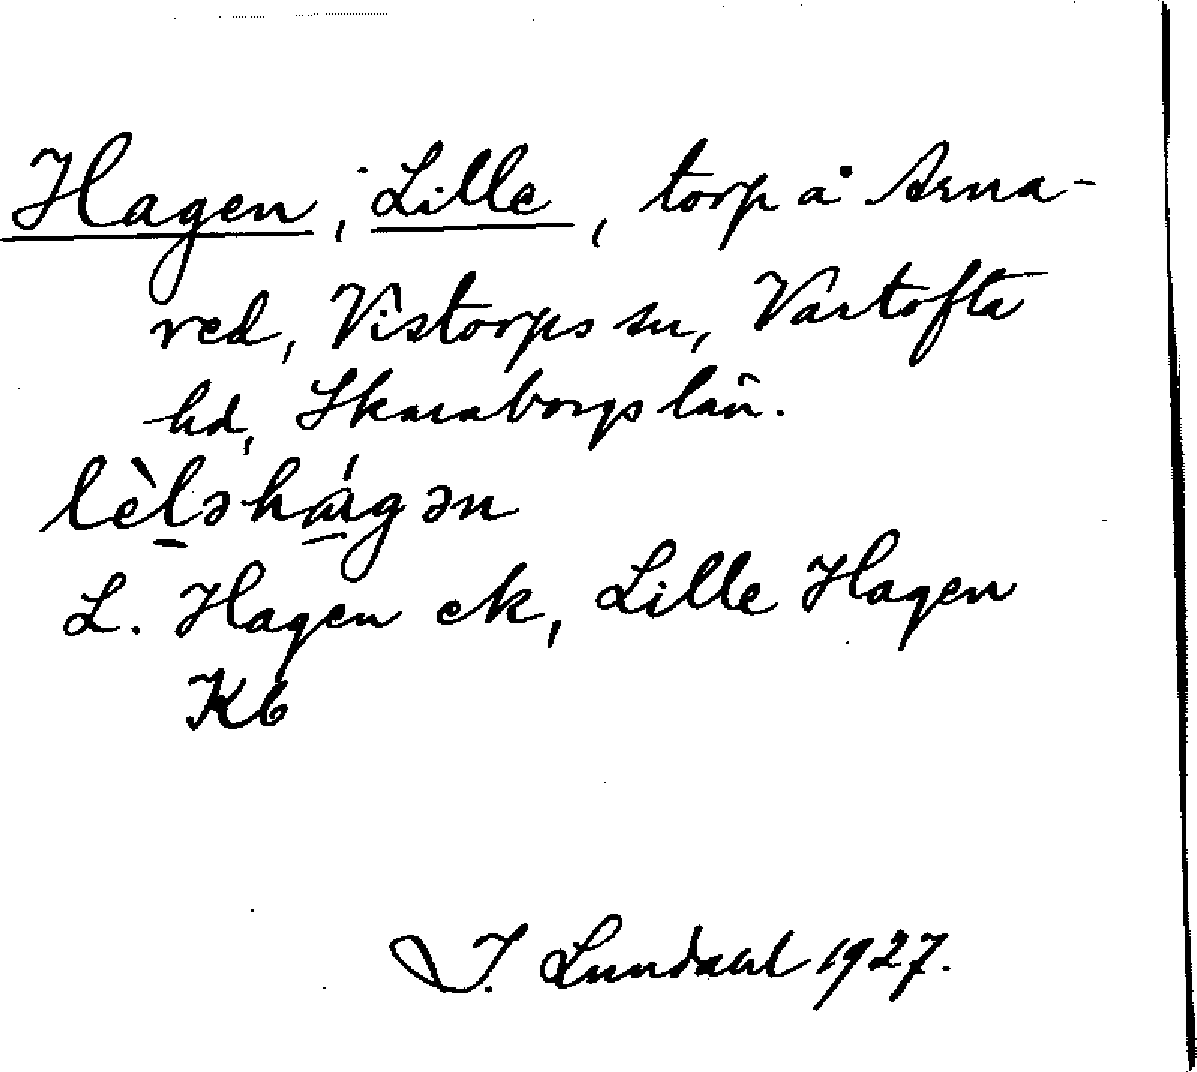 Hagen, Lille, torp å Arna-
red, Vistorps sn, Vartofta
hd, Skaraborgs län.
lèləhágən
L. Hagen ek, Lille Hagen
Kb
I. Lundahl 1927.